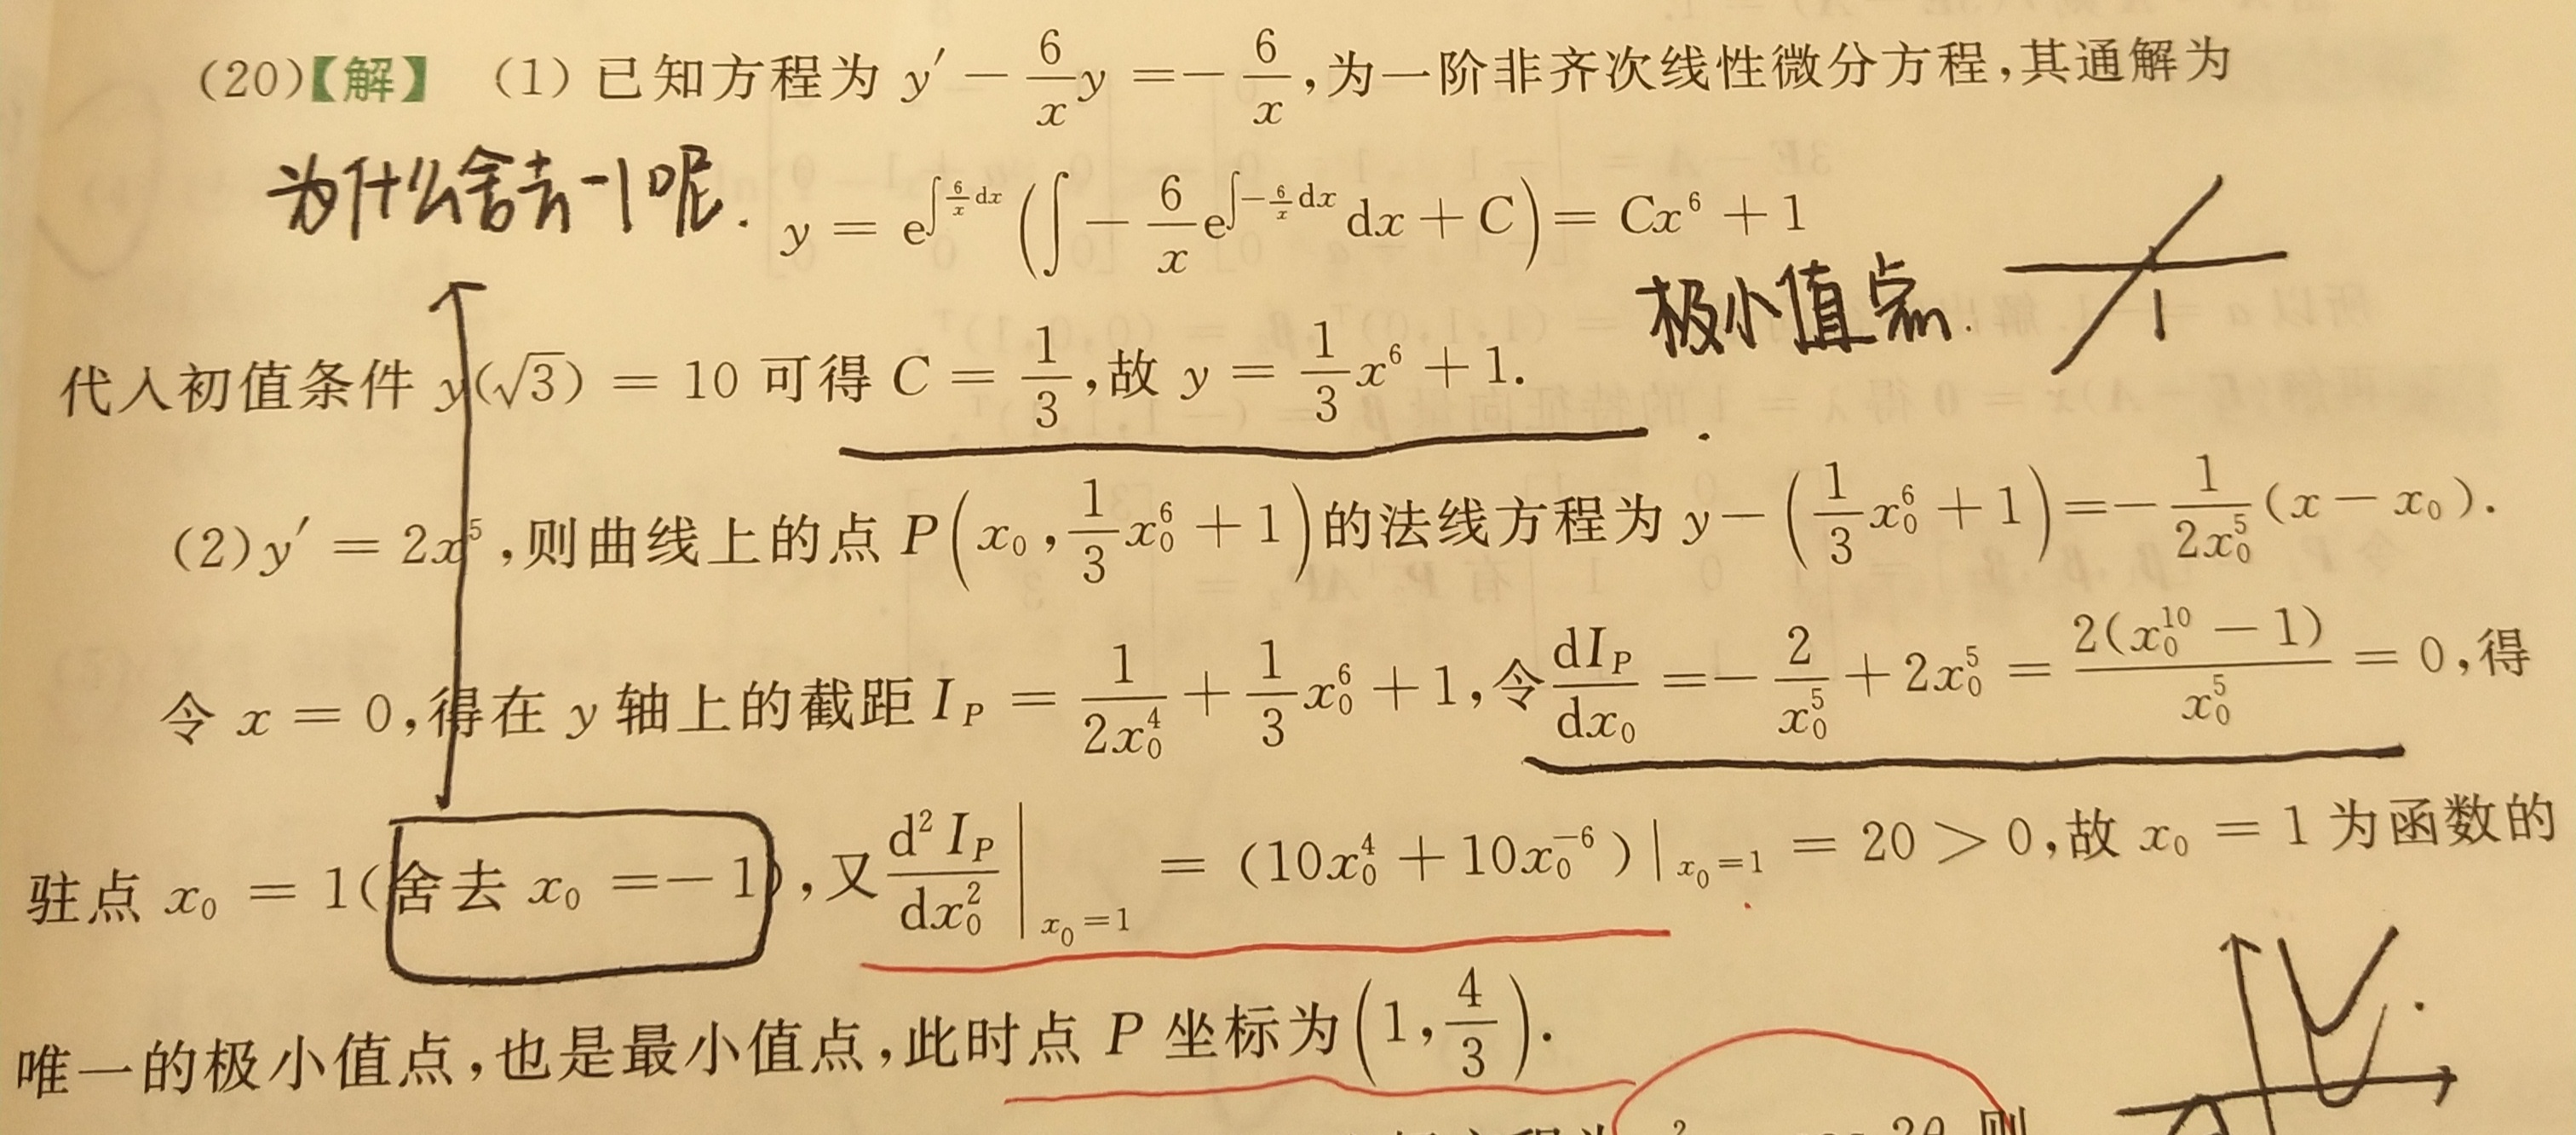 (20)【解】 (1) 已知方程为 y′ − 6/x y = − 6/x ,为一阶非齐次线性微分方程,其通解为
为什么舍去-1呢.
y = e^{∫ 6/x dx} (∫ − 6/x e^{∫ − 6/x dx} dx + C) = Cx⁶ + 1
极小值点.
1
代入初值条件 y(√3) = 10 可得 C = 1/3 ,故 y = 1/3 x⁶ + 1.
(2) y′ = 2x⁵ ,则曲线上的点 P(x₀ , 1/3 x₀⁶ + 1) 的法线方程为 y − (1/3 x₀⁶ + 1) = − 1/(2x₀⁵) (x − x₀).
令 x = 0,得在 y 轴上的截距 I_P = 1/(2x₀⁴) + 1/3 x₀⁶ + 1,令 dI_P/dx₀ = − 2/x₀⁵ + 2x₀⁵ = 2(x₀¹⁰ − 1)/x₀⁵ = 0,得
驻点 x₀ = 1(舍去 x₀ = − 1),又 d²I_P/dx₀² |_{x₀=1} = (10x₀⁴ + 10x₀⁻⁶)|_{x₀=1} = 20 > 0,故 x₀ = 1 为函数的
唯一的极小值点,也是最小值点,此时点 P 坐标为 (1, 4/3).